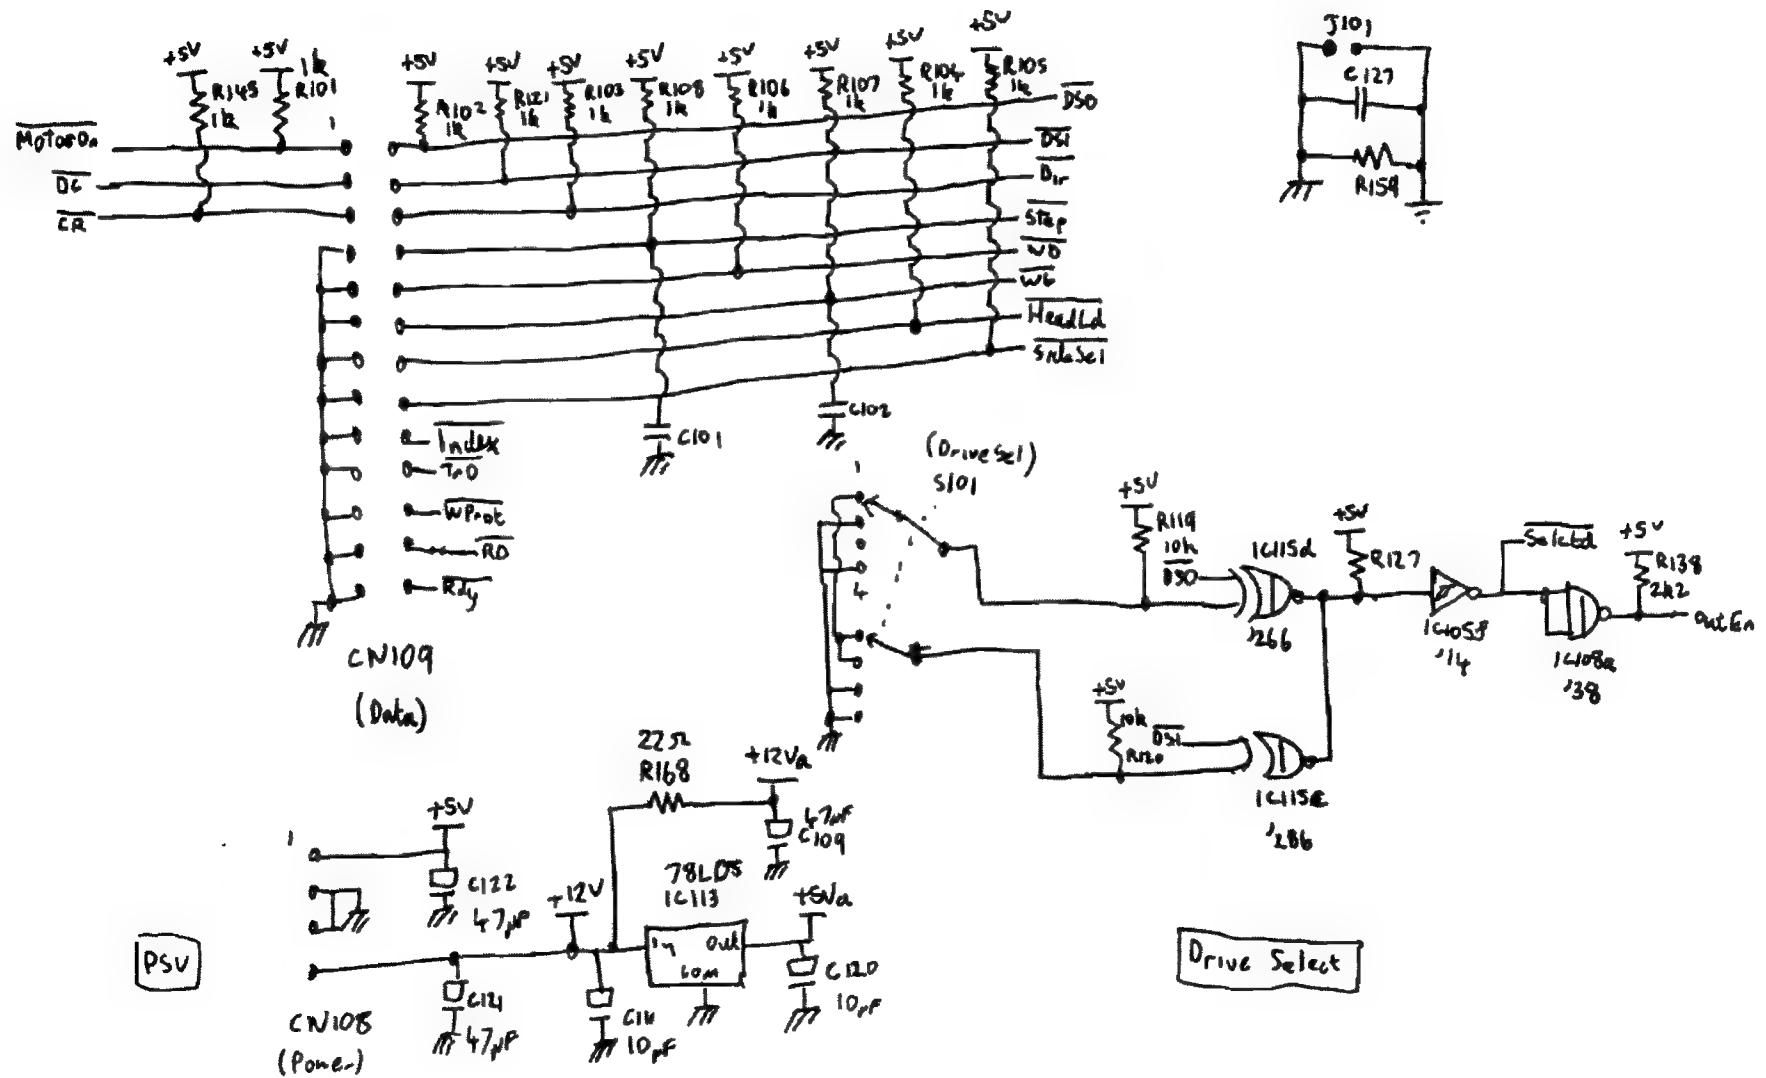 +5V
+5V
1k
R145
1k
R101
1
MotorOn
DC
ER
+5V
R102
1k
+5V
R121
1k
+5V
R103
1k
+5V
R108
1k
+5V
R106
1k
+5V
R107
1k
+5V
R104
1k
+5V
R105
1k
DS0
DS1
Dir
Step
WD
WG
HeadLd
SideSel
Index
Tr0
WProt
RD
Rdy
C101
C102
CN109
(Data)
J101
C127
R159
(DriveSel)
S101
1
4
+5V
R119
10k
DS0
IC115d
'266
+5V
R127
IC105f
'14
Selctd
+5V
R138
2k2
OutEn
IC108a
'38
+5V
10k
R120
DS1
IC115c
'266
22Ω
R168
+12Va
47µF
C109
+5V
1
C122
47µF
+12V
78L05
IC113
In
Out
Com
+5Va
C120
10µF
C121
47µF
C111
10µF
PSU
CN108
(Power)
Drive Select